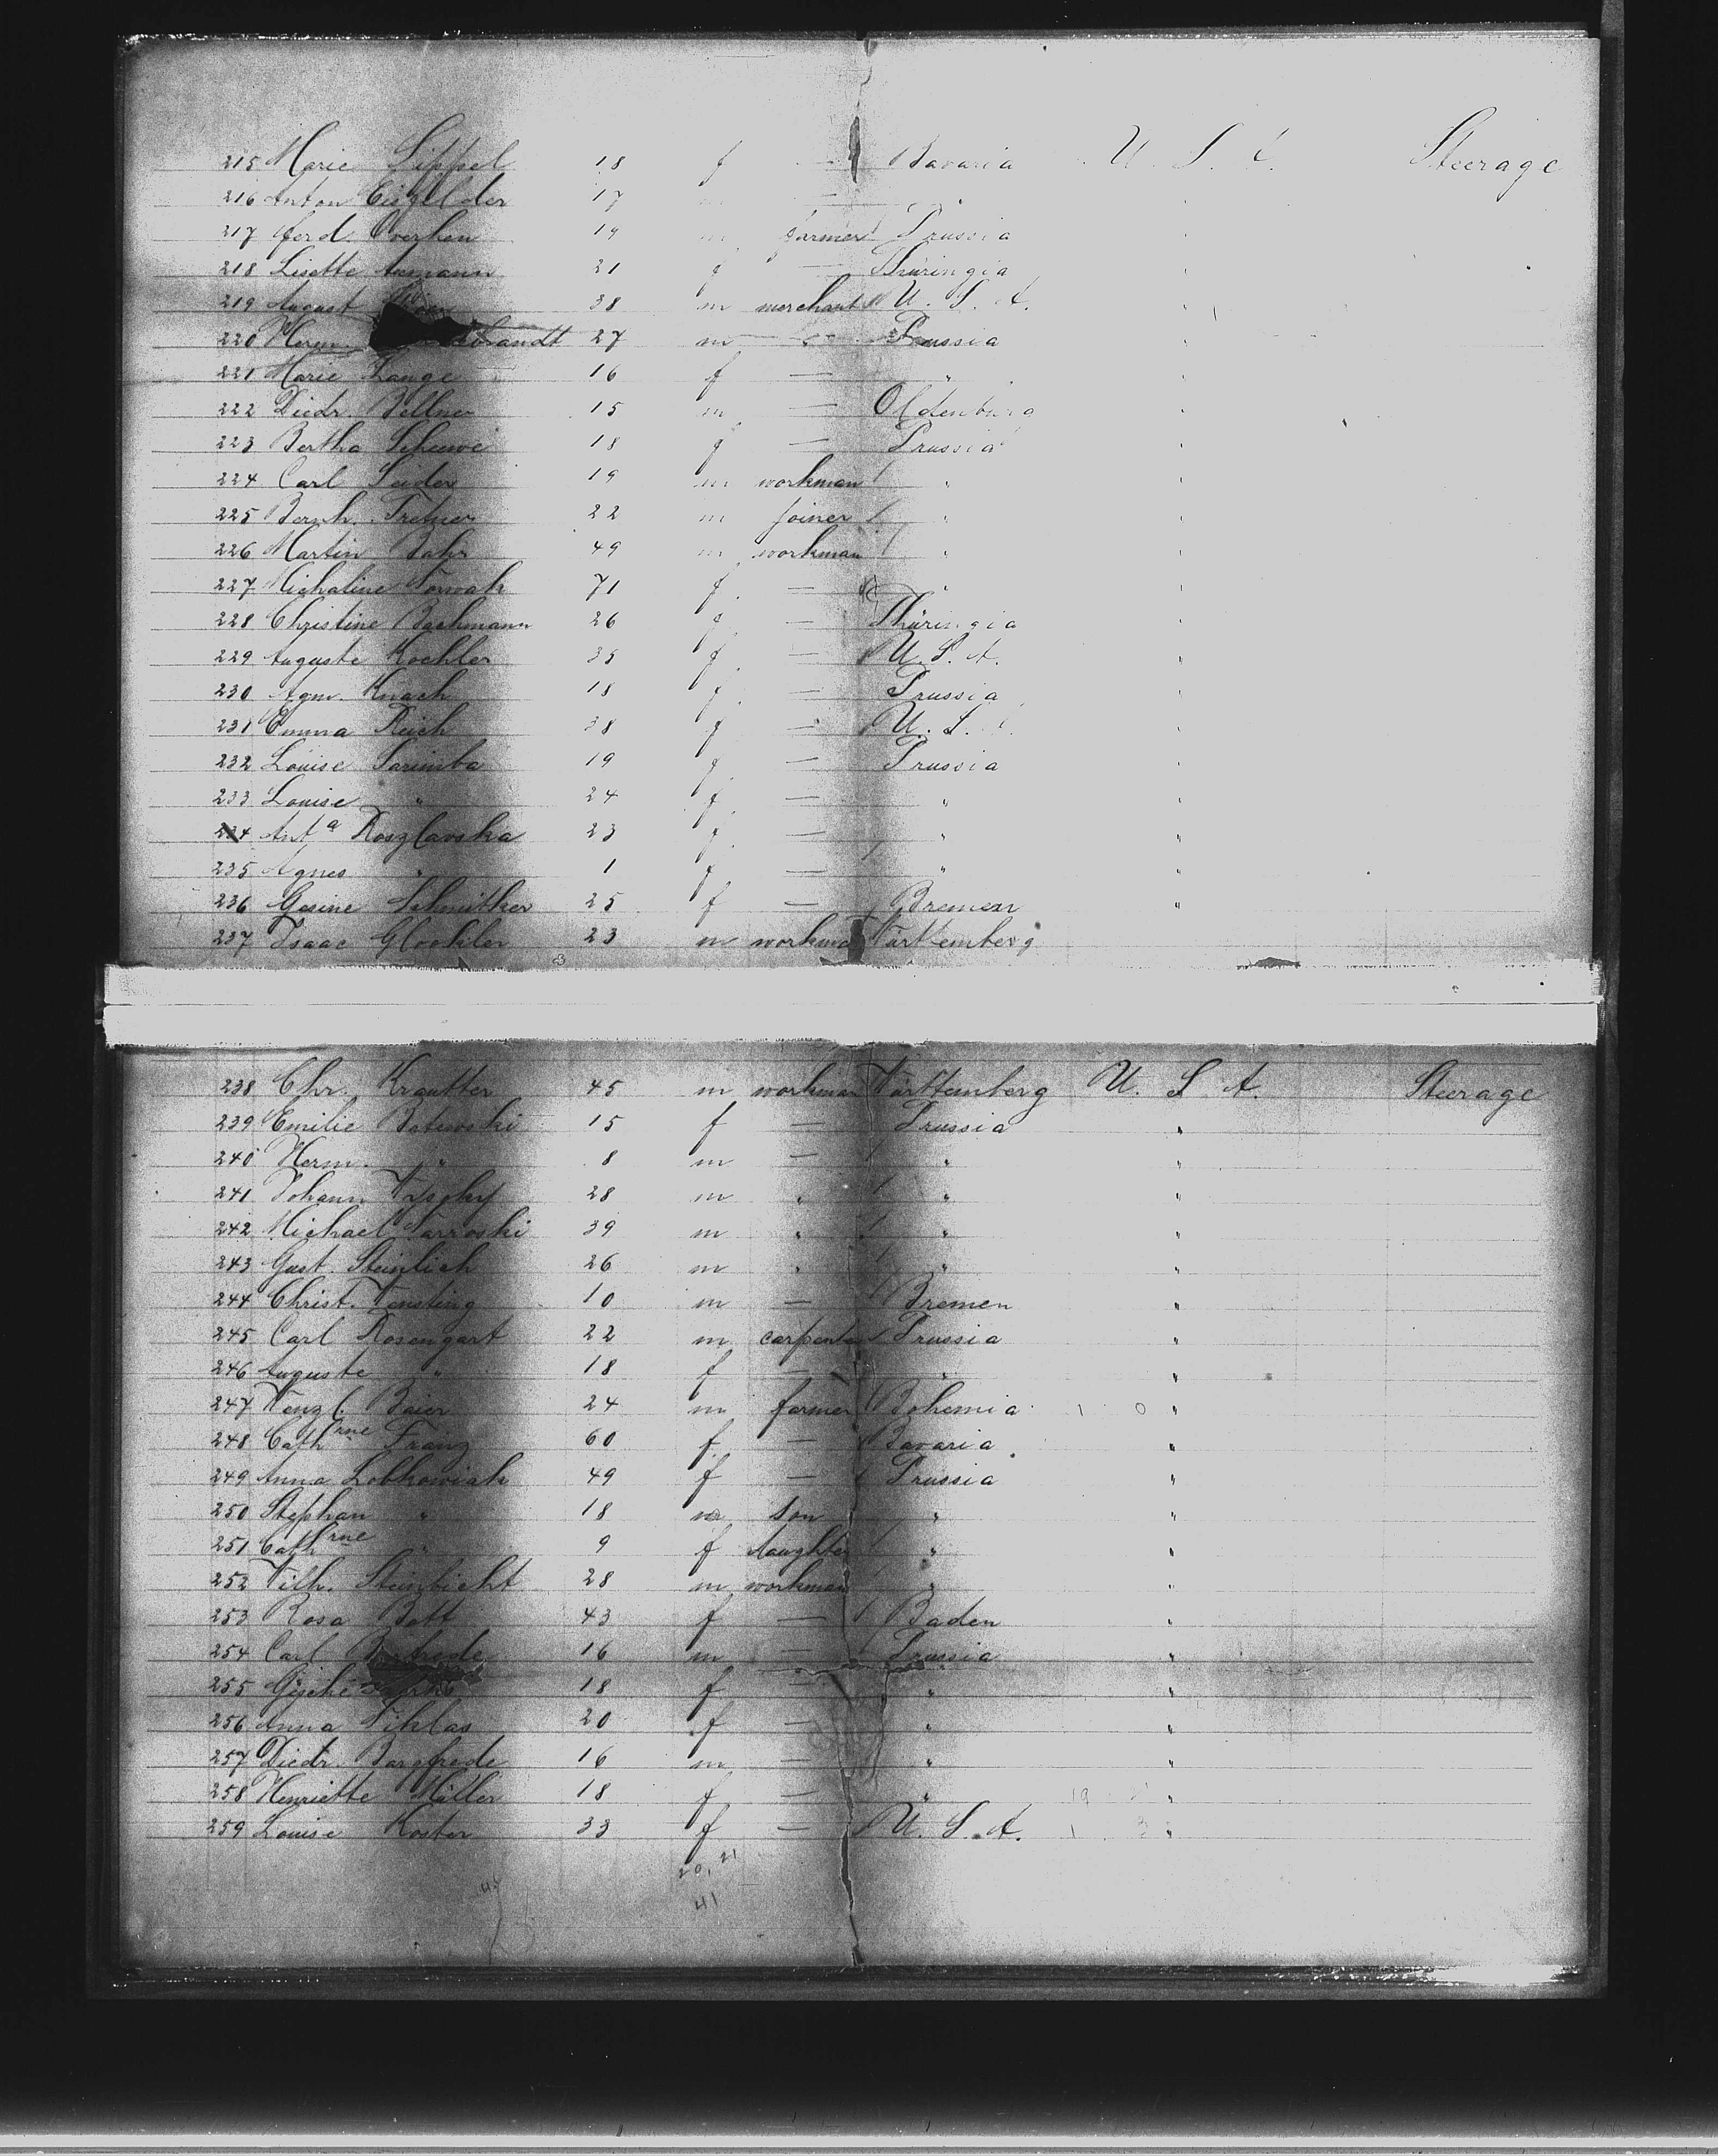 215 Marie Lippel 18 f — Bavaria U. S. A. Steerage
216 Anton Eisfelder 17 m — "
217 Ferd. Overhen 19 m farmer Prussia "
218 Lisette Aumann 21 f — Thüringia "
219 August 38 m merchant U. S. A. "
220 Herm. brandt 27 m — Prussia "
221 Marie Lange 16 f — " "
222 Diedr. Bellmer 15 m — Oldenburg "
223 Bertha Scheuwe 18 f — Prussia "
224 Carl Seider 19 m workman " "
225 Bernh. 22 m joiner " "
226 Martin Bahr 49 m workman " "
227 Michaline Nowak 71 f — " "
228 Christine Bachmann 26 f — Thüringia "
229 Auguste Kochler 35 f — U. S. A. "
230 Agn. Knach 18 f — Prussia "
231 Emma Reich 38 f — U. S. A. "
232 Louise Sarimba 19 f — Prussia "
233 Louise " 24 f — " "
234 Ant a Roszlavska 23 f — " "
235 Agnes " 1 f — " "
236 Gesine Schmitker 25 f — Bremen "
237 Isaac Glockler 23 m workman Württemberg
238 Chr. Krautter 45 m workman Württemberg U. S. A. Steerage
239 Emilie Batewski 15 f — Prussia "
240 Herm. " 8 m — " "
241 Johann 28 m " " "
242 Michael 39 m " " "
243 Gust. Steinlich 26 m " " "
244 Christ. Tensting 10 m — Bremen "
245 Carl Rosengart 22 m carpenter Prussia "
246 Auguste " 18 f — " "
247 Wenzl. Baier 24 m farmer Bohemia "
248 Cathrne Franz 60 f — Bavaria "
249 Anna Lobkowiak 49 f — Prussia "
250 Stephan " 18 m son " "
251 Cathrne " 9 f daughter " "
252 Wilh. Steinbicht 28 m workman " "
253 Rosa Bott 43 f — Baden "
254 Carl 16 m — Prussia "
255 Gesche 18 f — " "
256 Anna Wiklas 20 f — " "
257 Diedr. Bargfrede 16 m — " "
258 Henriette Müller 18 f — " "
259 Louise Koster 33 f — U. S. A. "
20. 21
41